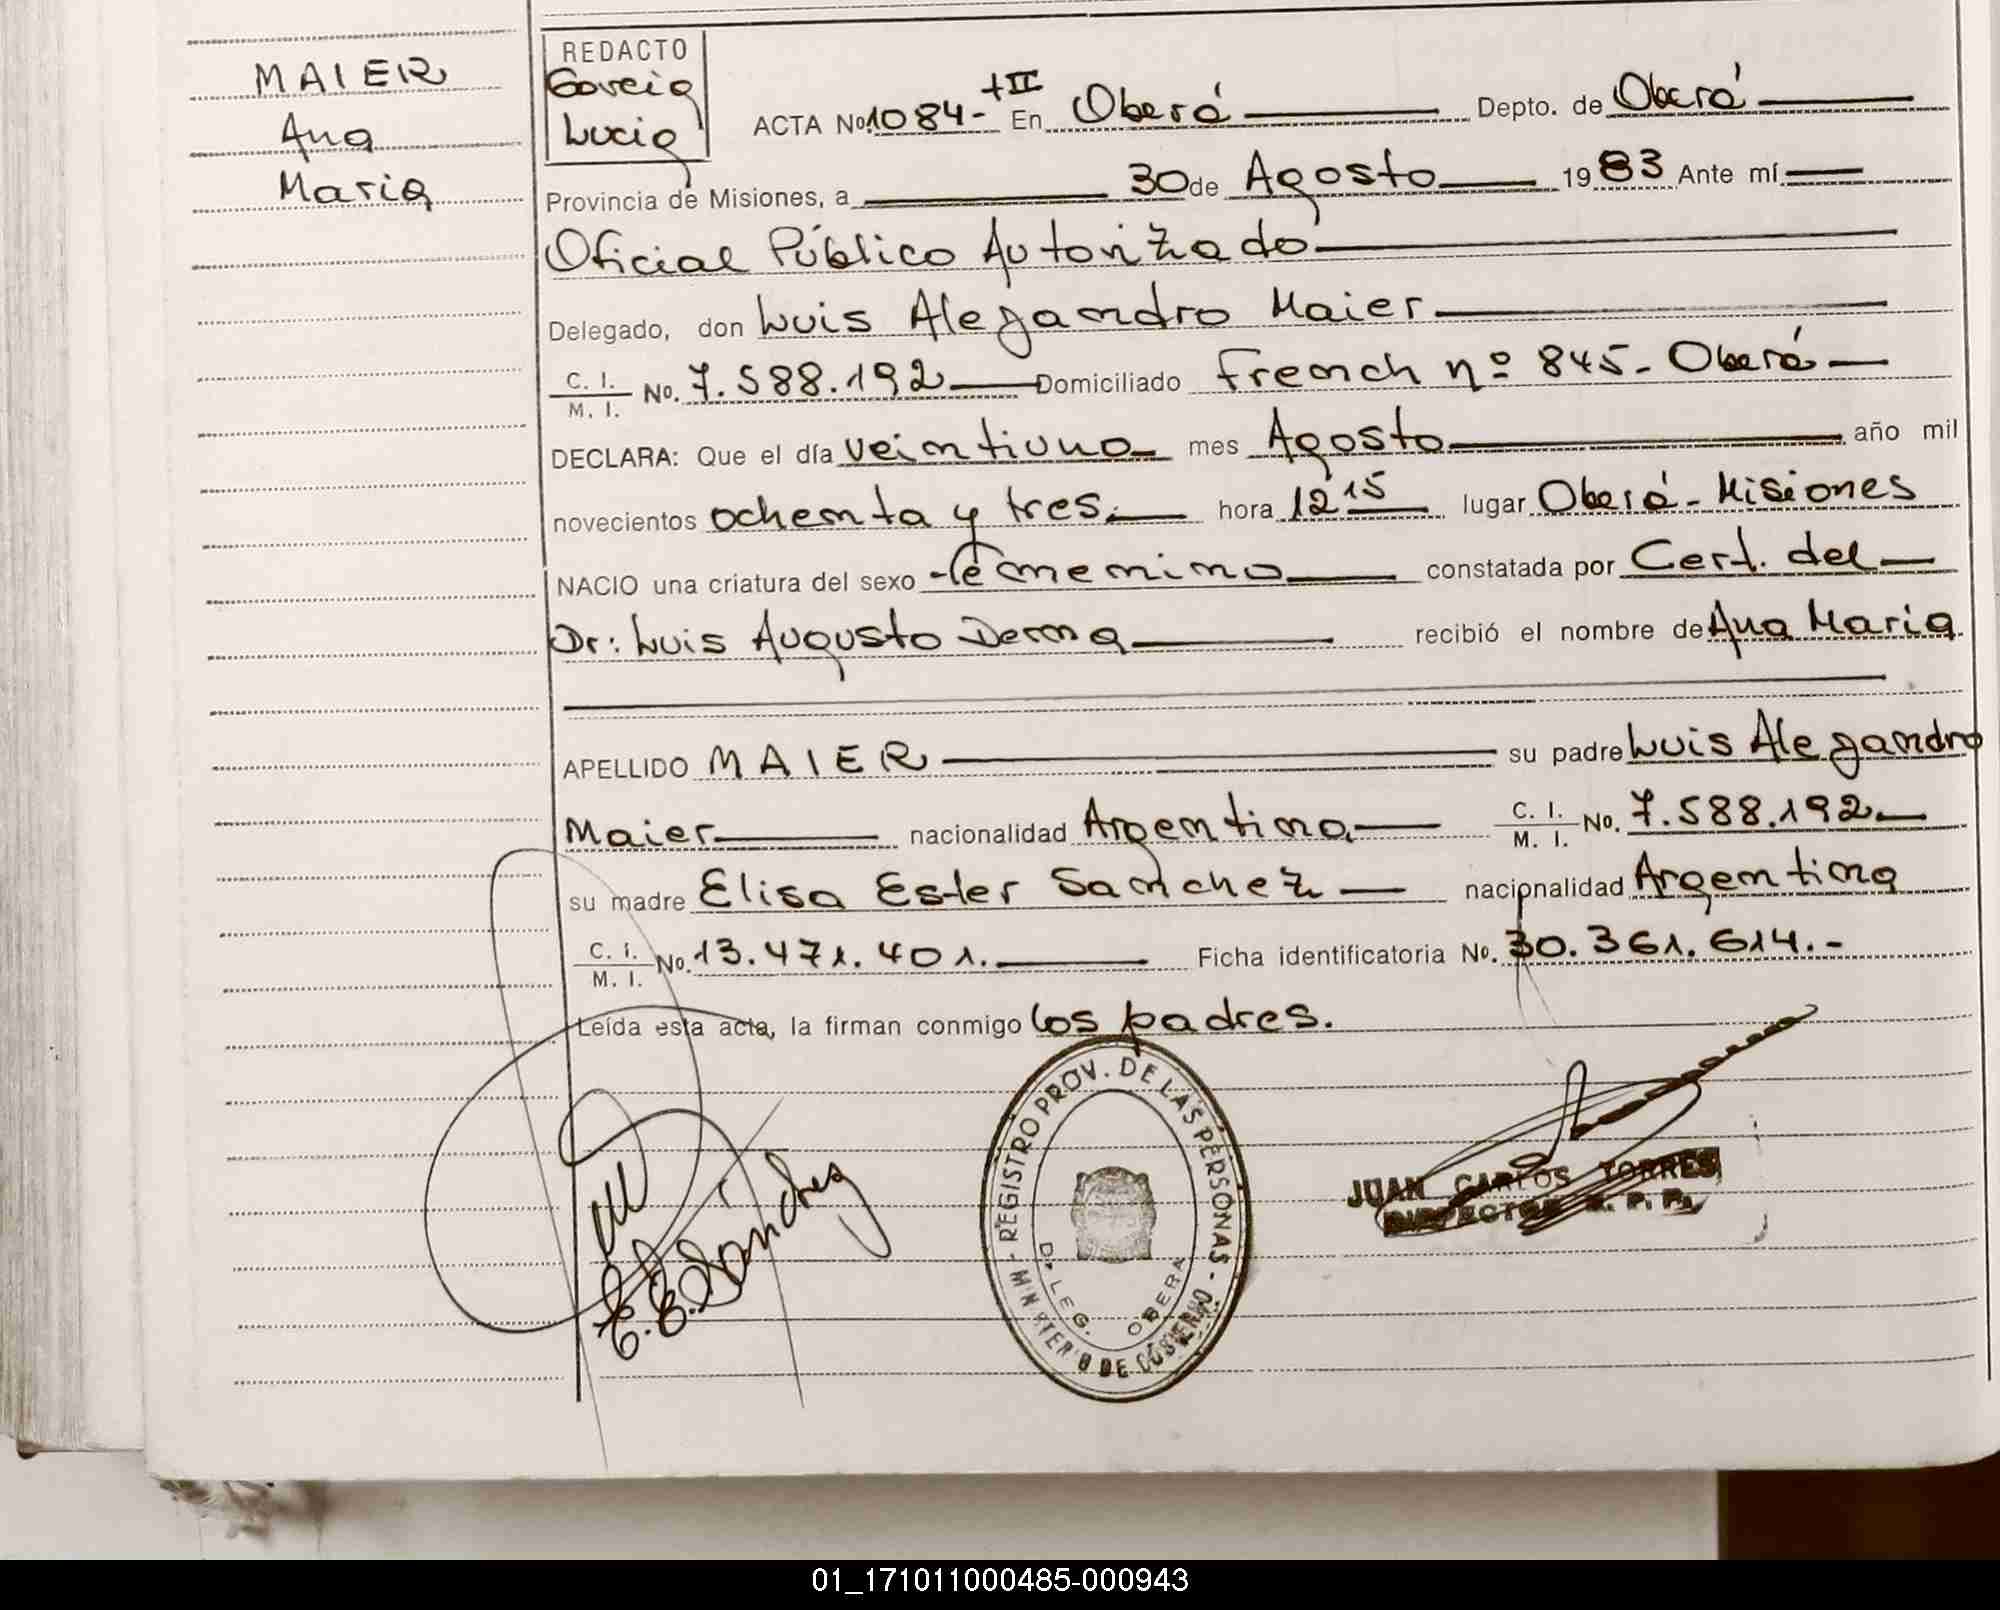 MAIER
Ana
Maria
REDACTO
Garcia
Lucia
ACTA No. 1084- TII En Oberá Depto. de Oberá
Provincia de Misiones, a 30 de Agosto 1983 Ante mí
Oficial Público Autorizado
Delegado, don Luis Alejandro Maier
C. I. / M. I. No. 7.588.192 Domiciliado French nº 845- Oberá
DECLARA: Que el día veintiuno mes Agosto año mil
novecientos ochenta y tres. hora 12 15 lugar Oberá - Misiones
NACIO una criatura del sexo femenino constatada por Cert. del
Dr: Luis Augusto Derna recibió el nombre de Ana Maria
APELLIDO MAIER su padre Luis Alejandro
Maier nacionalidad Argentina C. I. / M. I. No. 7.588.192
su madre Elisa Ester Sanchez nacionalidad Argentina
C. I. / M. I. No. 13.471.401. Ficha identificatoria No. 30.361.614.-
Leída esta acta, la firman conmigo los padres.
E.E.Sánchez
- REGISTRO PROV. DE LAS PERSONAS -
MINISTERIO DE GOBIERNO
DELEG. OBERA
JUAN CARLOS TORRES
DIRECTOR R. P. P.
01_171011000485-000943